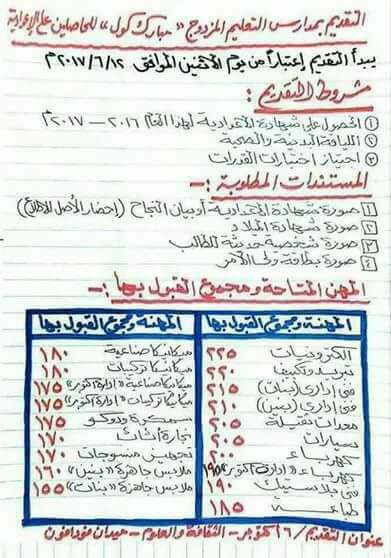 التقديم بمدارس التعليم المزدوج "مبارك كول" للحاصلين على الإعدادية
يبدأ التقديم إعتباراً من يوم الأثنين الموافق ٢٠١٧/٦/١٢ م
شروط التقديم :-
١ الحصول على شهادة الاعدادية لهذا العام ٢٠١٦ - ٢٠١٧ م
٢ اللياقة البدنية والصحية
٣ اجتياز اختبارات القدرات
المستندات المطلوبة :-
١ صورة شهادة الاعدادية أو بيان النجاح (إحضار الأصل للاطلاع)
٢ صورة شهادة الميلاد
٣ صورة شخصية حديثة للطالب
٤ صورة بطاقة ولى الأمر
المهن المتاحة ومجموع القبول بها :-
المهنة ومجموع القبول بها
الكترونيات ٢٢٥
تبريد وتكييف ٢٢٠
فنى إدارى (بنات) ٢١٥
فنى إدارى (بنين) ٢١٠
معدات ثقيلة ٢٠٥
سيارات ٢٠٥
كهرباء ٢٠٠
كهرباء "إدارة أكتوبر" ١٩٥
فنى بلاستيك ١٩٠
طباعة ١٨٥
المهنة ومجموع القبول بها
ميكانيكا صناعية ١٨٠
ميكانيكا تركيبات ١٨٠
ميكانيكا صناعية "إدارة أكتوبر" ١٧٥
ميكانيكا تركيبات "إدارة أكتوبر" ١٧٥
سمكرة ودوكو ١٧٥
نجارة أثاث ١٧٠
تجهيز منسوجات ١٧٠
ملابس جاهزة "بنين" ١٦٠
ملابس جاهزة "بنات" ١٥٥
عنوان التقديم / ٦ أكتوبر - الثقافة والعلوم - ميدان فودافون